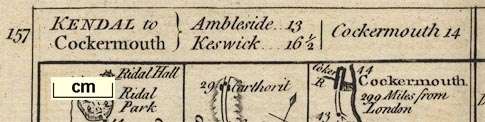 157
KENDAL to Cockermouth } Ambleside..13 Keswick..16½ Cockermouth 14
Ridal Hall
Ridal
Park
cm
44
29
Carthoril
Coker
R
44
Cockermouth
299 Miles from
London
43